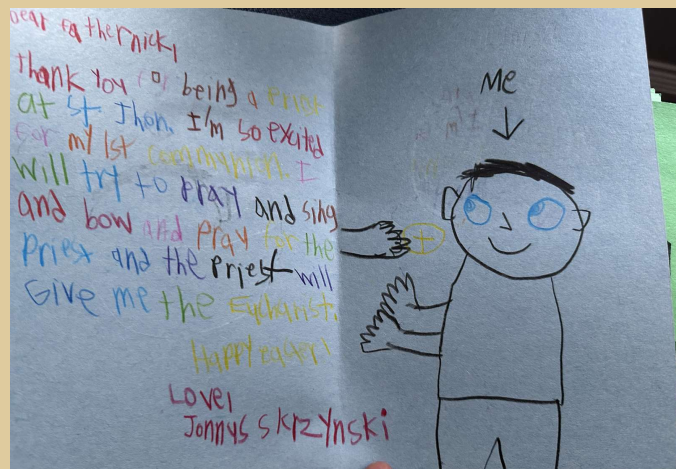 Dear Father nick,
Thank You for being a Priest
at st Jhon, I'm so excited
for my 1st communion. I
will try to pray and sing
and bow and pray for the
Priest and the priest will
Give me the Eucharist.
Happy easter!
Love,
Jonnys skrzynski
Me